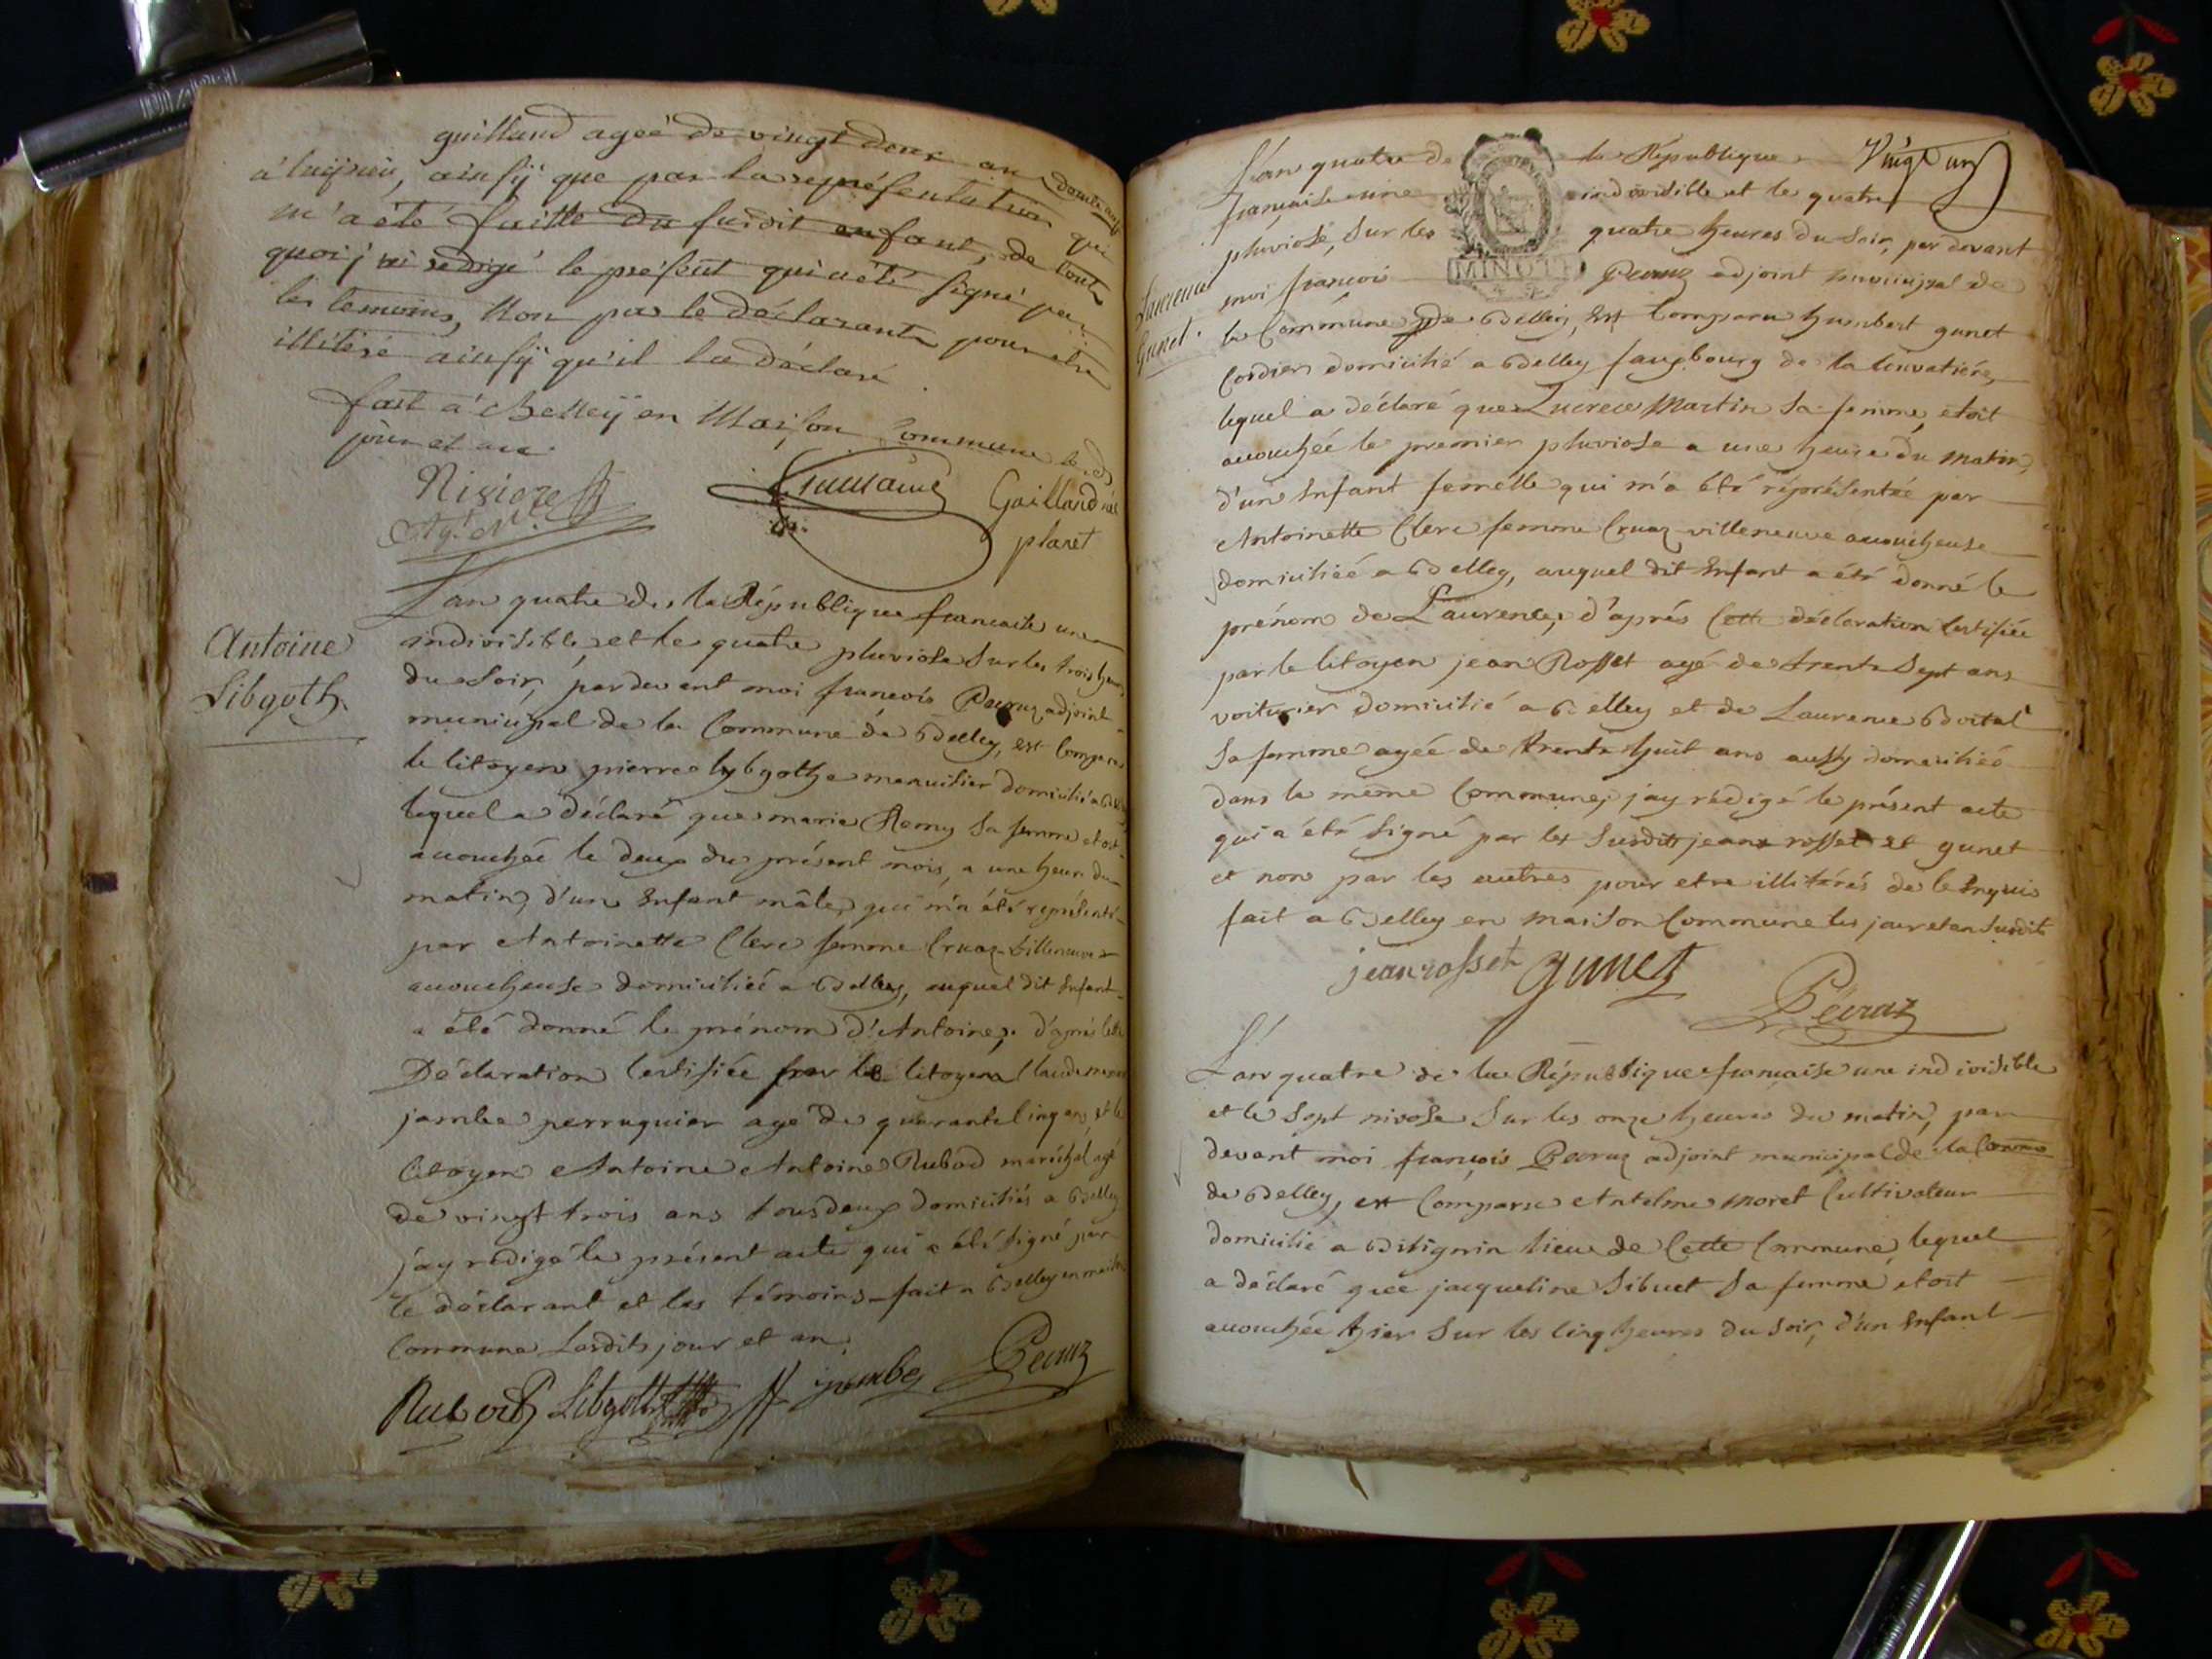 guilland agéé de vingt deux an
à luijrieu, ainsÿ que par la représentation qui
m'a été faitte du susdit enfant, de tout
quoi j'ai rédigé le présent qui a été signé par
les temoins, Non pas le déclarant pour etre
illiteré ainsÿ qu'il la déclaré.
fait à Belleÿ en Maison Commune les d.
jour et an
Nivière
Agt. Nal.
Gaillard
planet
Antoine
Libgoth.
L'an quatre de la République francaise une
indivisible, et le quatre pluviose sur les trois heures
du soir, pardevant moi francois Pecruz adjoint
municipal de la Commune de Belley, est comparu
le Citoyen pierre lybgothe menuisier domicilié a Belley
lequel a déclaré que marie Remy sa femme etoit
accouchée le deux du présent mois, a une heure du
matin, d'un Enfant mâle, qui m'a été représenté
par Antoinette Clerc femme Cruaz-Villeneuve
accoucheuse domiciliée a Belley, auquel dit Enfant
a été donné le prénom d'Antoine, d'aprés cette
Déclaration certifiée par le Citoyen Claude
jambe perruquier agé de quarante cinq ans, et le
Citoyen Antoine Antoine Rubod maréchal agé
de vingt trois ans tous deux domiciliés a Belley
j'ay rédigé le présent acte qui a été signé par
le déclarant et les témoins fait a Belley en maison
Commune Lesdits jour et an.
Rubod Libgoth jambe Pecruz
Vingt un
L'an quatre de la République
francaise une indivisible et le quatre
pluviose, sur les quatre heures du soir, par devant
moi francois Pecruz adjoint municipal de
MINUTE
Laurence
Gunet.
la Commune de Belley, est Comparu humbert gunet
Cordier domicilié a Belley faugbourg de la
lequel a déclaré que Lucrece Martin sa femme, etoit
accouchéé le premier pluviose a une heure du matin,
d'un Enfant femelle qui m'a été réprésentée par
Antoinette Clerc femme Cruaz-villeneuve accoucheuse
domiciliéé a Belley, auquel dit Enfant a été donné le
prénom de Laurence, d'aprés Cette déclaration certifiée
par le Citoyen jean Rosset agé de trente sept ans
voiturier domicilié a Belley et de Laurence Boital
sa femme agéé de trente huit ans aussy domiciliéé
dans la même Commune, j'ay rédigé le présent acte
qui a été signé par les susdits jean rosset et gunet
et non par les autres pour etre illitérés de ce enquis
fait a Belley en maison Commune les jour et an susdits
jean rosset gunet
Pécruz
L'an quatre de la République francaise une indivisible
et le sept nivose sur les onze heures du matin, par
devant moi françois Pecruz adjoint municipal de la Comme
de Belley, est Comparu Antelme Moret Cultivateur
domicilié a Bitignin lieu de Cette Commune, lequel
a déclaré que jacqueline Sibuet sa femme, etoit
accouchée hier sur les cinq heures du soir, d'un Enfant